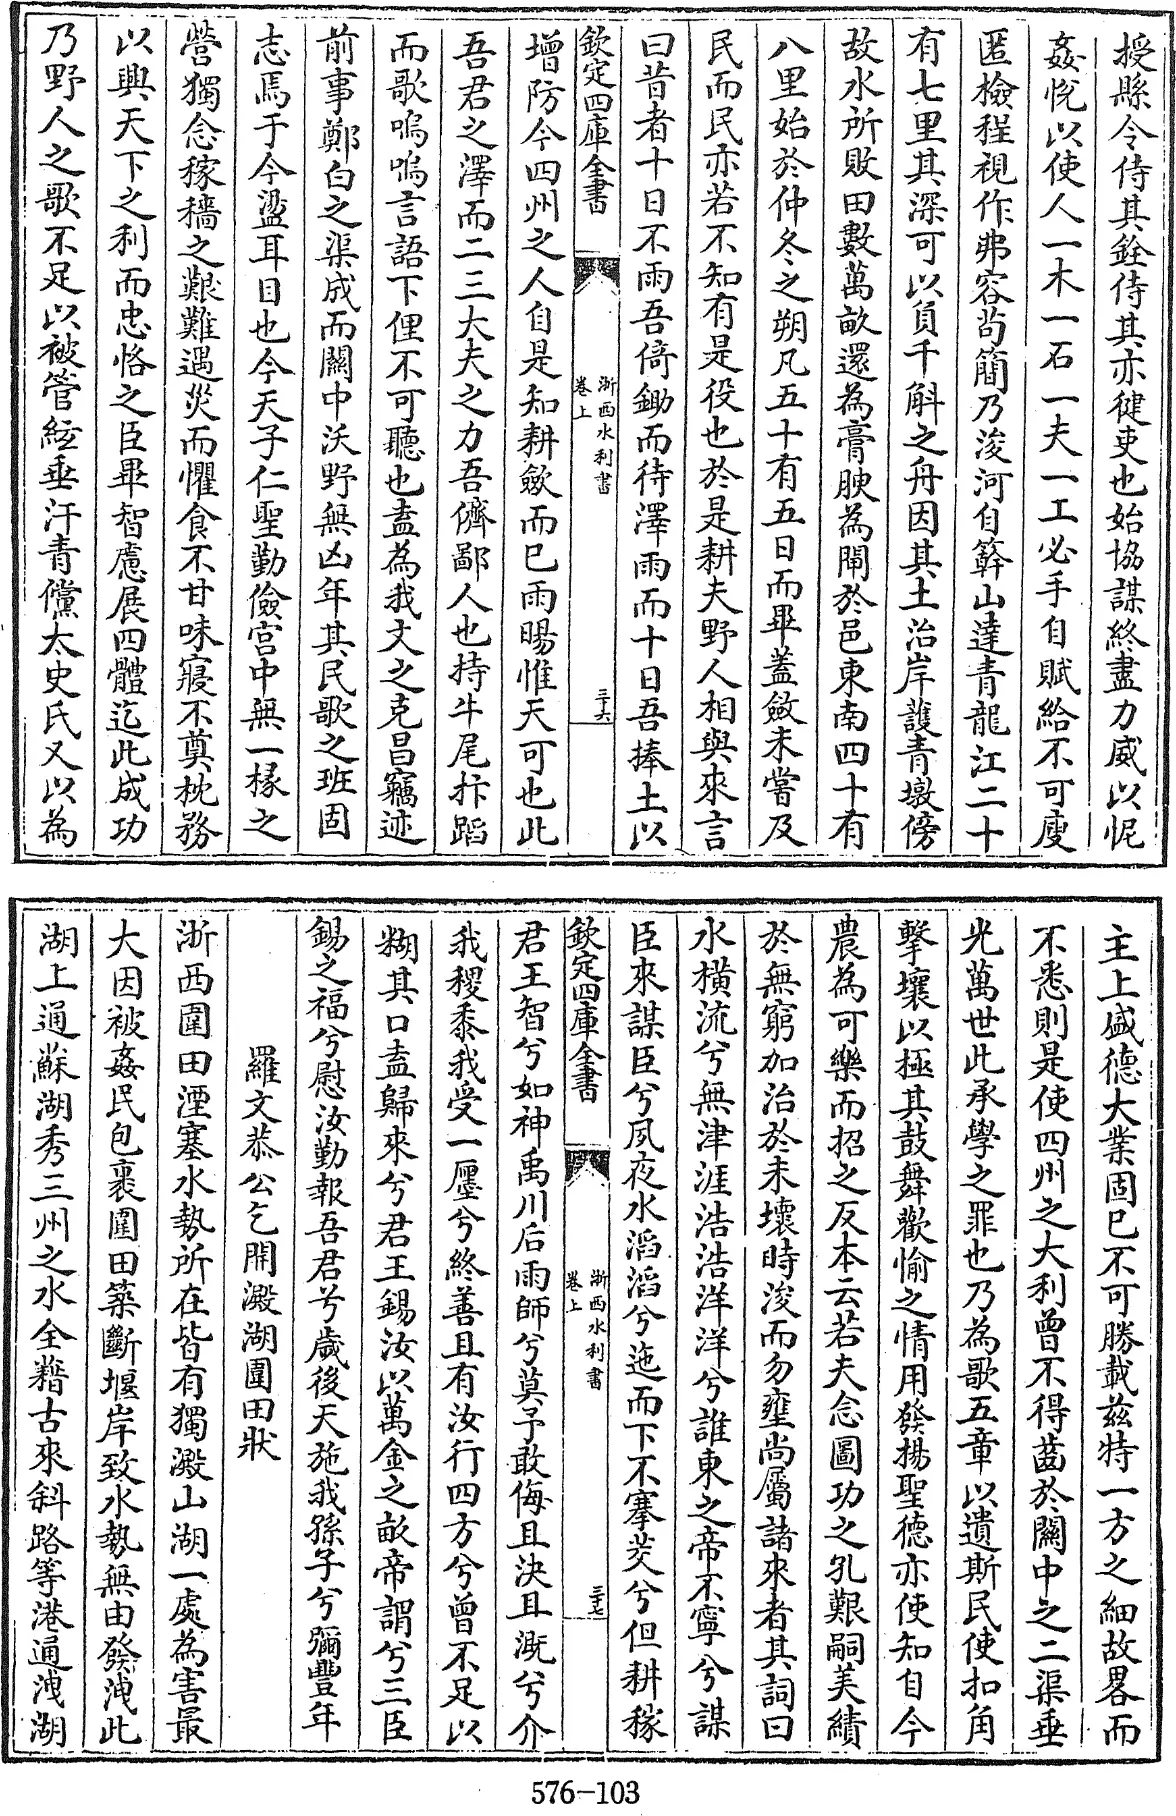 授縣令侍其銓侍其亦健吏也始協謀終盡力威以怩
姦悅以使人一木一石一夫一工必手自賦給不可廋
匿檢程視作弗容苟簡乃浚河自簳山達青龍江二十
有七里其深可以負千斛之舟因其土治岸護青墩傍
故水所敗田數萬畝還為膏腴為閘於邑東南四十有
八里始於仲冬之朔凡五十有五日而畢蓋斂未嘗及
民而民亦若不知有是役也於是耕夫野人相與來言
曰昔者十日不雨吾倚鋤而待澤雨而十日吾捧土以
欽定四庫全書
浙西水利書
卷上
三十六
增防今四州之人自是知耕斂而已雨暘惟天可也此
吾君之澤而二三大夫之力吾儕鄙人也持牛尾抃蹈
而歌嗚嗚言語下俚不可聽也盍為我文之克昌竊迹
前事鄭白之渠成而關中沃野無凶年其民歌之班固
志焉于今盪耳目也今天子仁聖勤儉宫中無一椽之
營獨念稼穡之艱難遇災而懼食不甘味寢不奠枕務
以興天下之利而忠恪之臣畢智慮展四體迄此成功
乃野人之歌不足以被管絃垂汗青儻太史氏又以為
主上盛德大業固已不可勝載兹特一方之細故畧而
不悉則是使四州之大利曾不得齒於關中之二渠垂
光萬世此承學之罪也乃為歌五章以遺斯民使扣角
擊壤以極其鼓舞歡愉之情用發揚聖德亦使知自今
農為可樂而招之反本云若夫念圖功之孔艱嗣美績
於無窮加治於未壞時浚而勿壅尚屬諸來者其詞曰
水橫流兮無津涯浩浩洋洋兮誰東之帝不寧兮謀
臣來謀臣兮夙夜水滔滔兮迤而下不搴茭兮但耕稼
欽定四庫全書
浙西水利書
卷上
三十七
君王智兮如神禹川后雨師兮莫予敢侮且決且溉兮介
我稷黍我受一廛兮終善且有汝行四方兮曾不足以
糊其口盍歸來兮君王錫汝以萬金之畝帝謂兮三臣
錫之福兮慰汝勤報吾君兮歲後天施我孫子兮彌豐年
羅文恭公乞開澱湖圍田狀
浙西圍田湮塞水勢所在皆有獨澱山湖一處為害最
大因被姦民包裹圍田築斷堰岸致水勢無由發洩此
湖上通蘇湖秀三州之水全藉古來斜路等港通洩湖
576-103